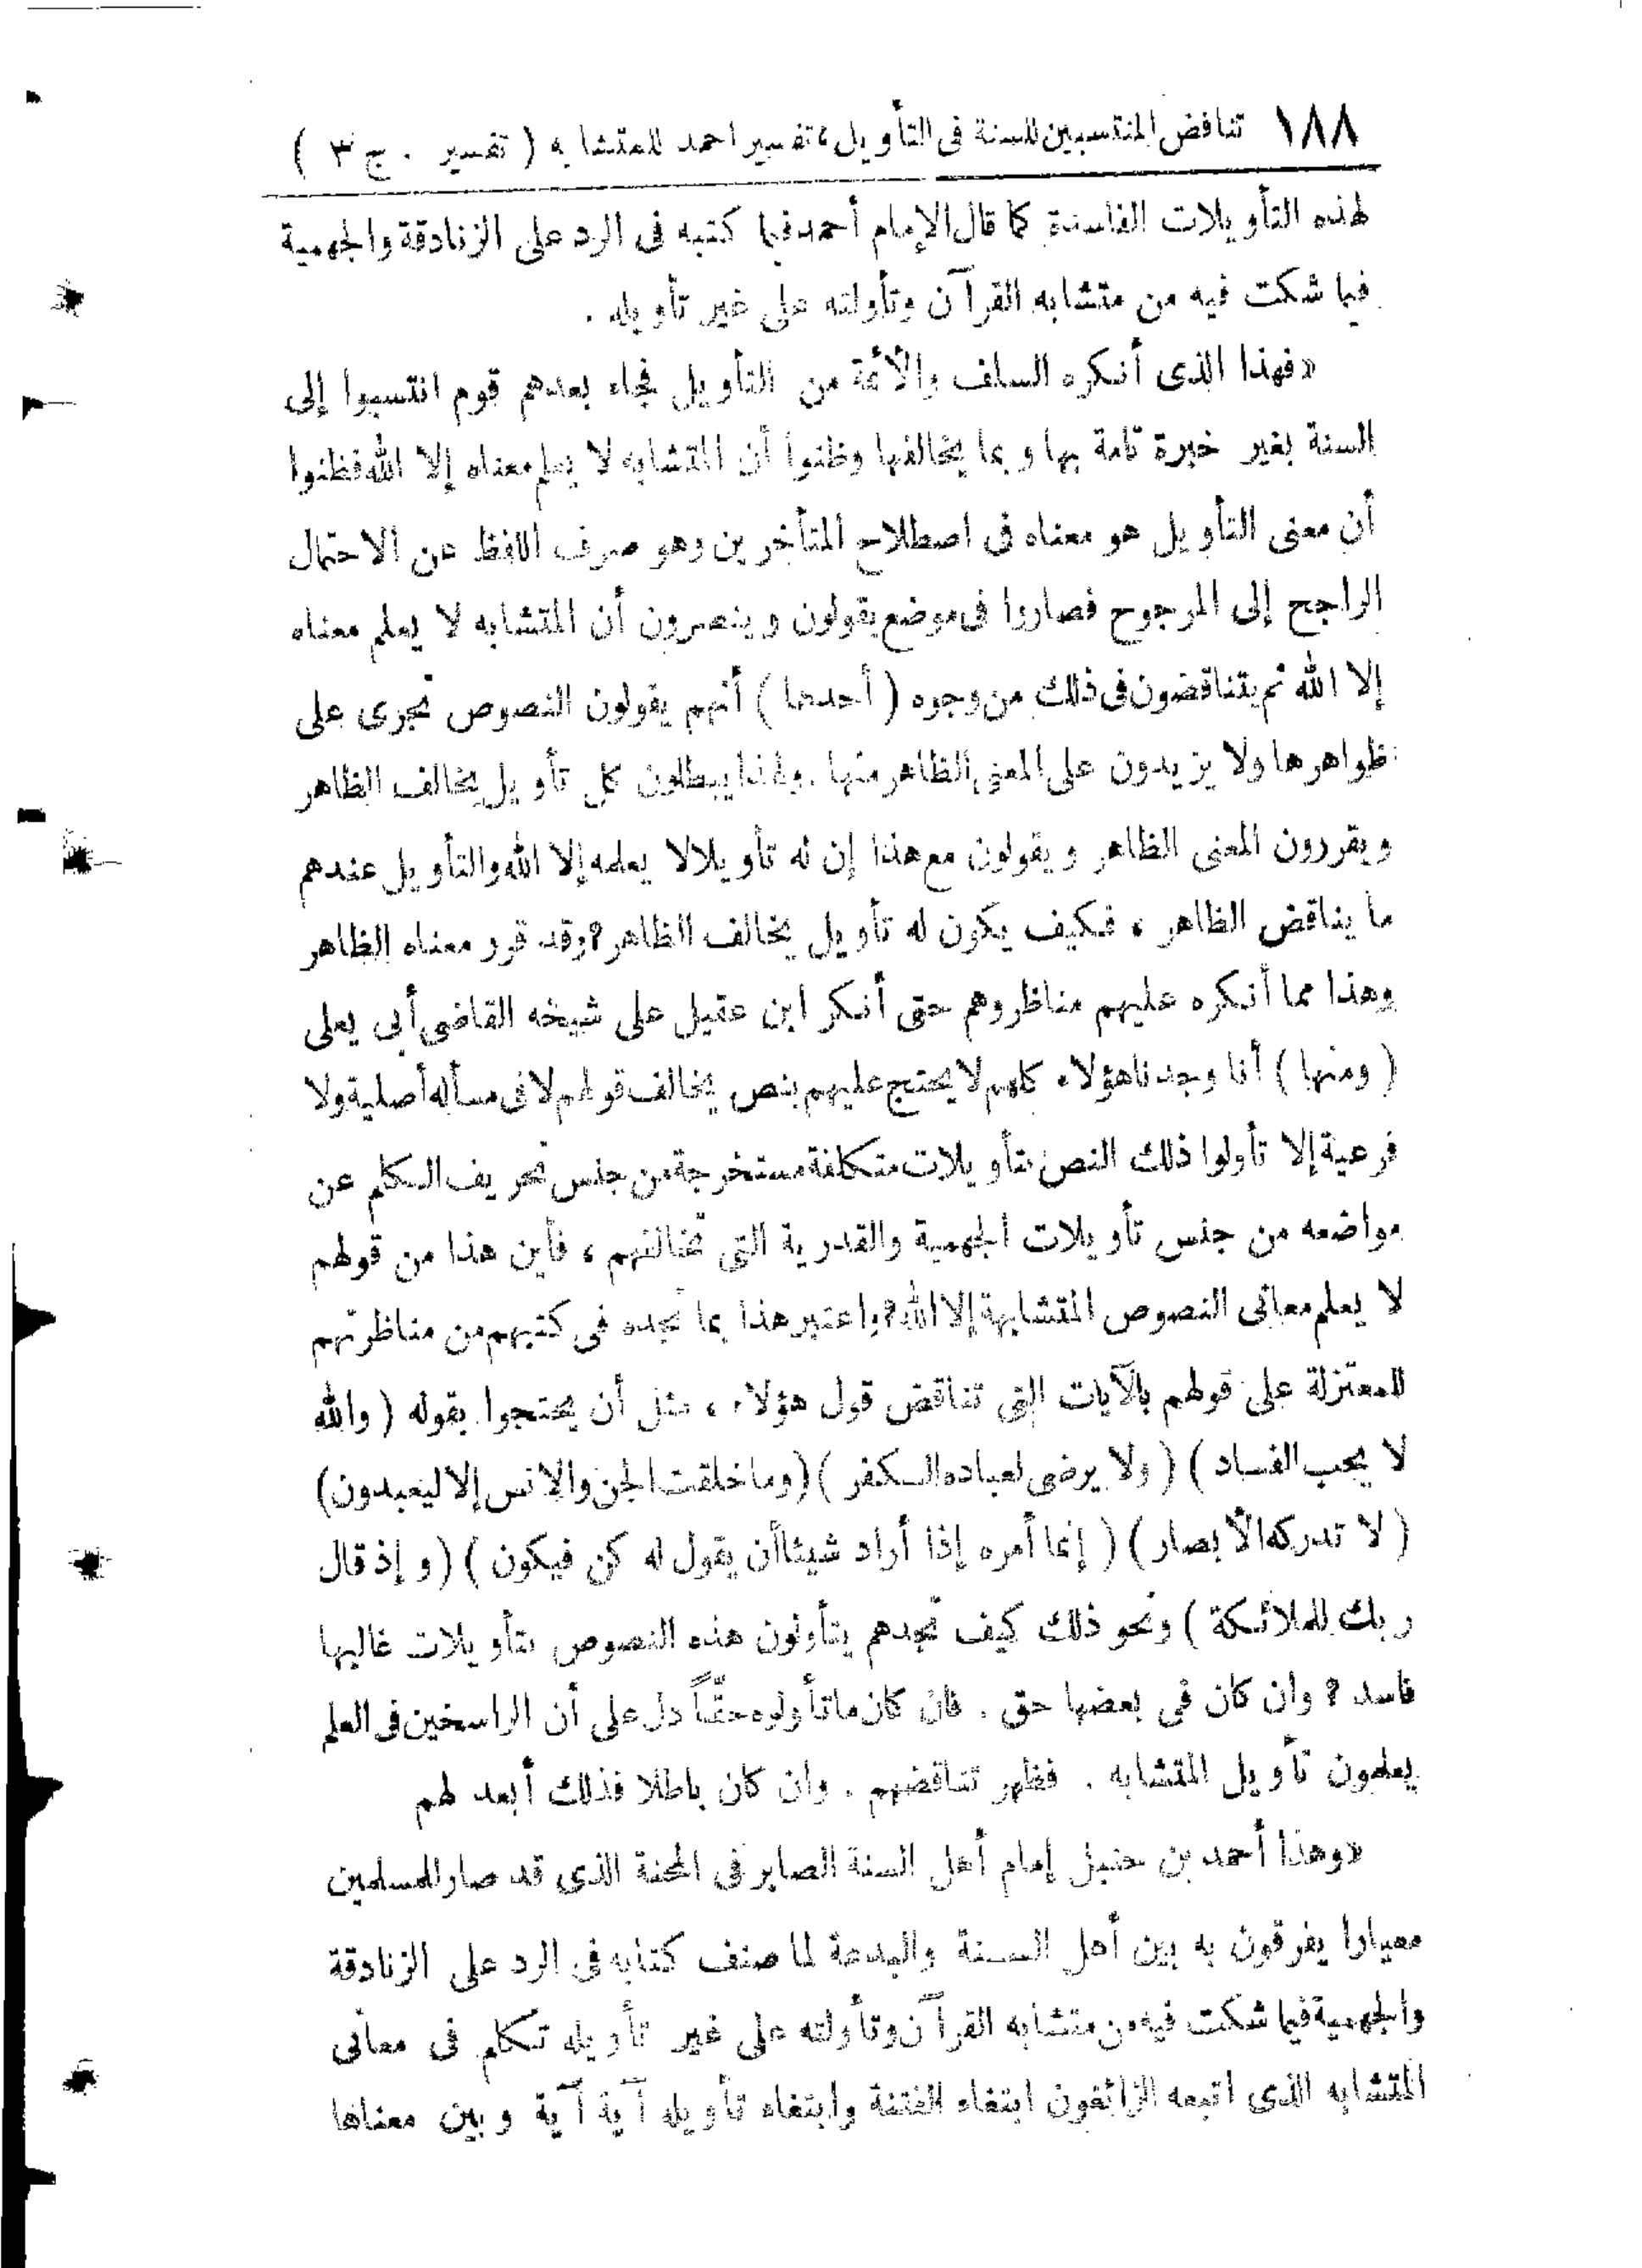 ١٨٨ تناقض المنتسبين للسنة فى التأويل، تفسير احمد للمتشابه ( تفسير . ج ٣ )
لهذه التأويلات الفاسدة كما قال الإمام أحمد فيما كتبه فى الرد على الزنادقة والجهمية
فيما شكت فيه من متشابه القرآن وتأولته على غير تأويله .
«فهذا الذى أنكره السلف والأئمة من التأويل فجاء بعدهم قوم انتسبوا إلى
السنة بغير خبرة تامة بها وبما يخالفها وظنوا أن المتشابه لا يعلم معناه إلا الله فظنوا
أن معنى التأويل هو معناه فى اصطلاح المتأخرين وهو صرف اللفظ عن الاحتمال
الراجح إلى المرجوح فصاروا فى موضع يقولون وينصرون أن المتشابه لا يعلم معناه
إلا الله ثم يتناقضون فى ذلك من وجوه ( أحدها ) أنهم يقولون النصوص تجرى على
ظواهرها ولا يزيدون على المعنى الظاهر منها . ولهذا يبطلون كل تأويل يخالف الظاهر
ويقررون المعنى الظاهر ويقولون مع هذا إن له تأويلا لا يعلمه إلا الله والتأويل عندهم
ما يناقض الظاهر ، فكيف يكون له تأويل يخالف الظاهر؟ وقد قرر معناه الظاهر
وهذا مما أنكره عليهم مناظروهم حتى أنكر ابن عقيل على شيخه القاضى أبى يعلى
( ومنها ) أنا وجدنا هؤلاء كلهم لا يحتج عليهم بنص يخالف قولهم لا فى مسألة أصلية ولا
فرعية إلا تأولوا ذلك النص بتأويلات متكلفة مستخرجة من جنس تحريف الكلم عن
مواضعه من جنس تأويلات الجهمية والقدرية التى تخالفهم ، فأين هذا من قولهم
لا يعلم معانى النصوص المتشابهة إلا الله؟ واعتبر هذا بما تجده فى كتبهم من مناظرتهم
للمعتزلة على قولهم بالآيات التى تناقض قول هؤلاء ، مثل أن يحتجوا بقوله ( والله
لا يحب الفساد ) ( ولا يرضى لعباده الكفر ) ( وما خلقت الجن والانس إلا ليعبدون )
( لا تدركه الأبصار ) ( إنما أمره إذا أراد شيئا أن يقول له كن فيكون ) ( وإذ قال
ربك للملائكة ) ونحو ذلك كيف تجدهم يتأولون هذه النصوص بتأويلات غالبها
فاسد ؟ وان كان فى بعضها حق . فان كان ما تأولوه حقاً دل على أن الراسخين فى العلم
يعلمون تأويل المتشابه . فظهر تناقضهم . وان كان باطلا فذلك أبعد لهم
«وهذا أحمد بن حنبل إمام أهل السنة الصابر فى المحنة الذى قد صار للمسلمين
معيارا يفرقون به بين أهل السنة والبدعة لما صنف كتابه فى الرد على الزنادقة
والجهمية فيما شكت فيه من متشابه القرآن وتأولته على غير تأويله تكلم فى معانى
المتشابه الذى اتبعه الزائغون ابتغاء الفتنة وابتغاء تأويله آية آية وبين معناها